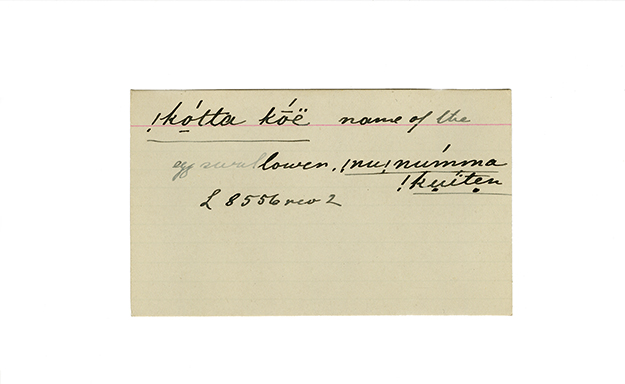 !kó̤tta kṓë name of the
egg swallower. !nu!númma
!kṵïtẹn
L 8556 rev 2